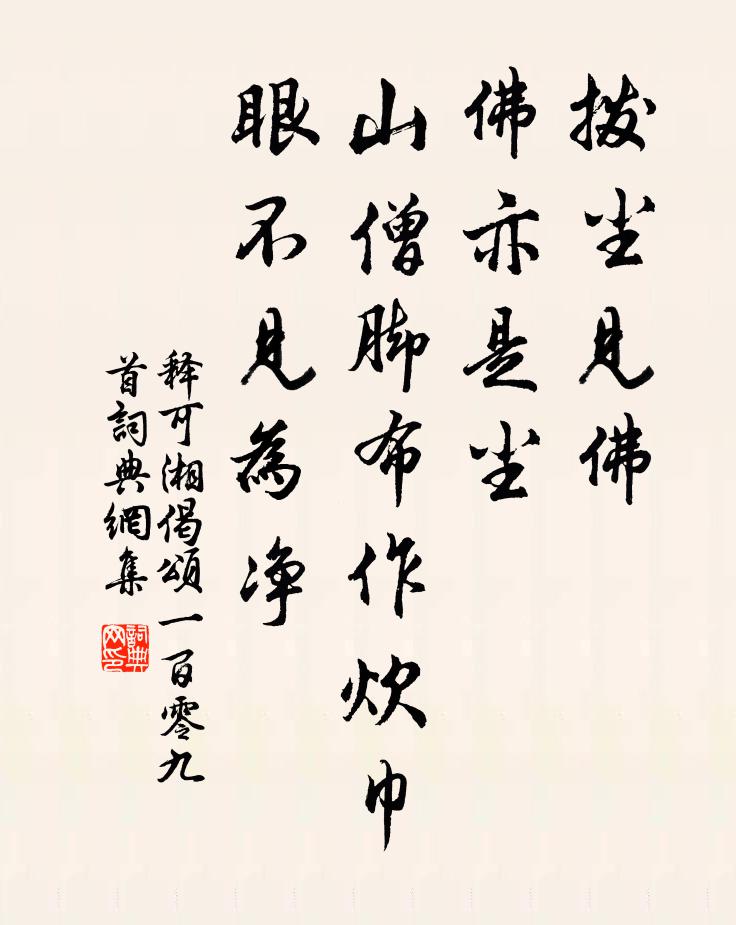 拨尘见佛
佛亦是尘
山僧脚布作炊巾
眼不见為净
释可湘偈颂一百零九
首詞典網集
詞典
网印